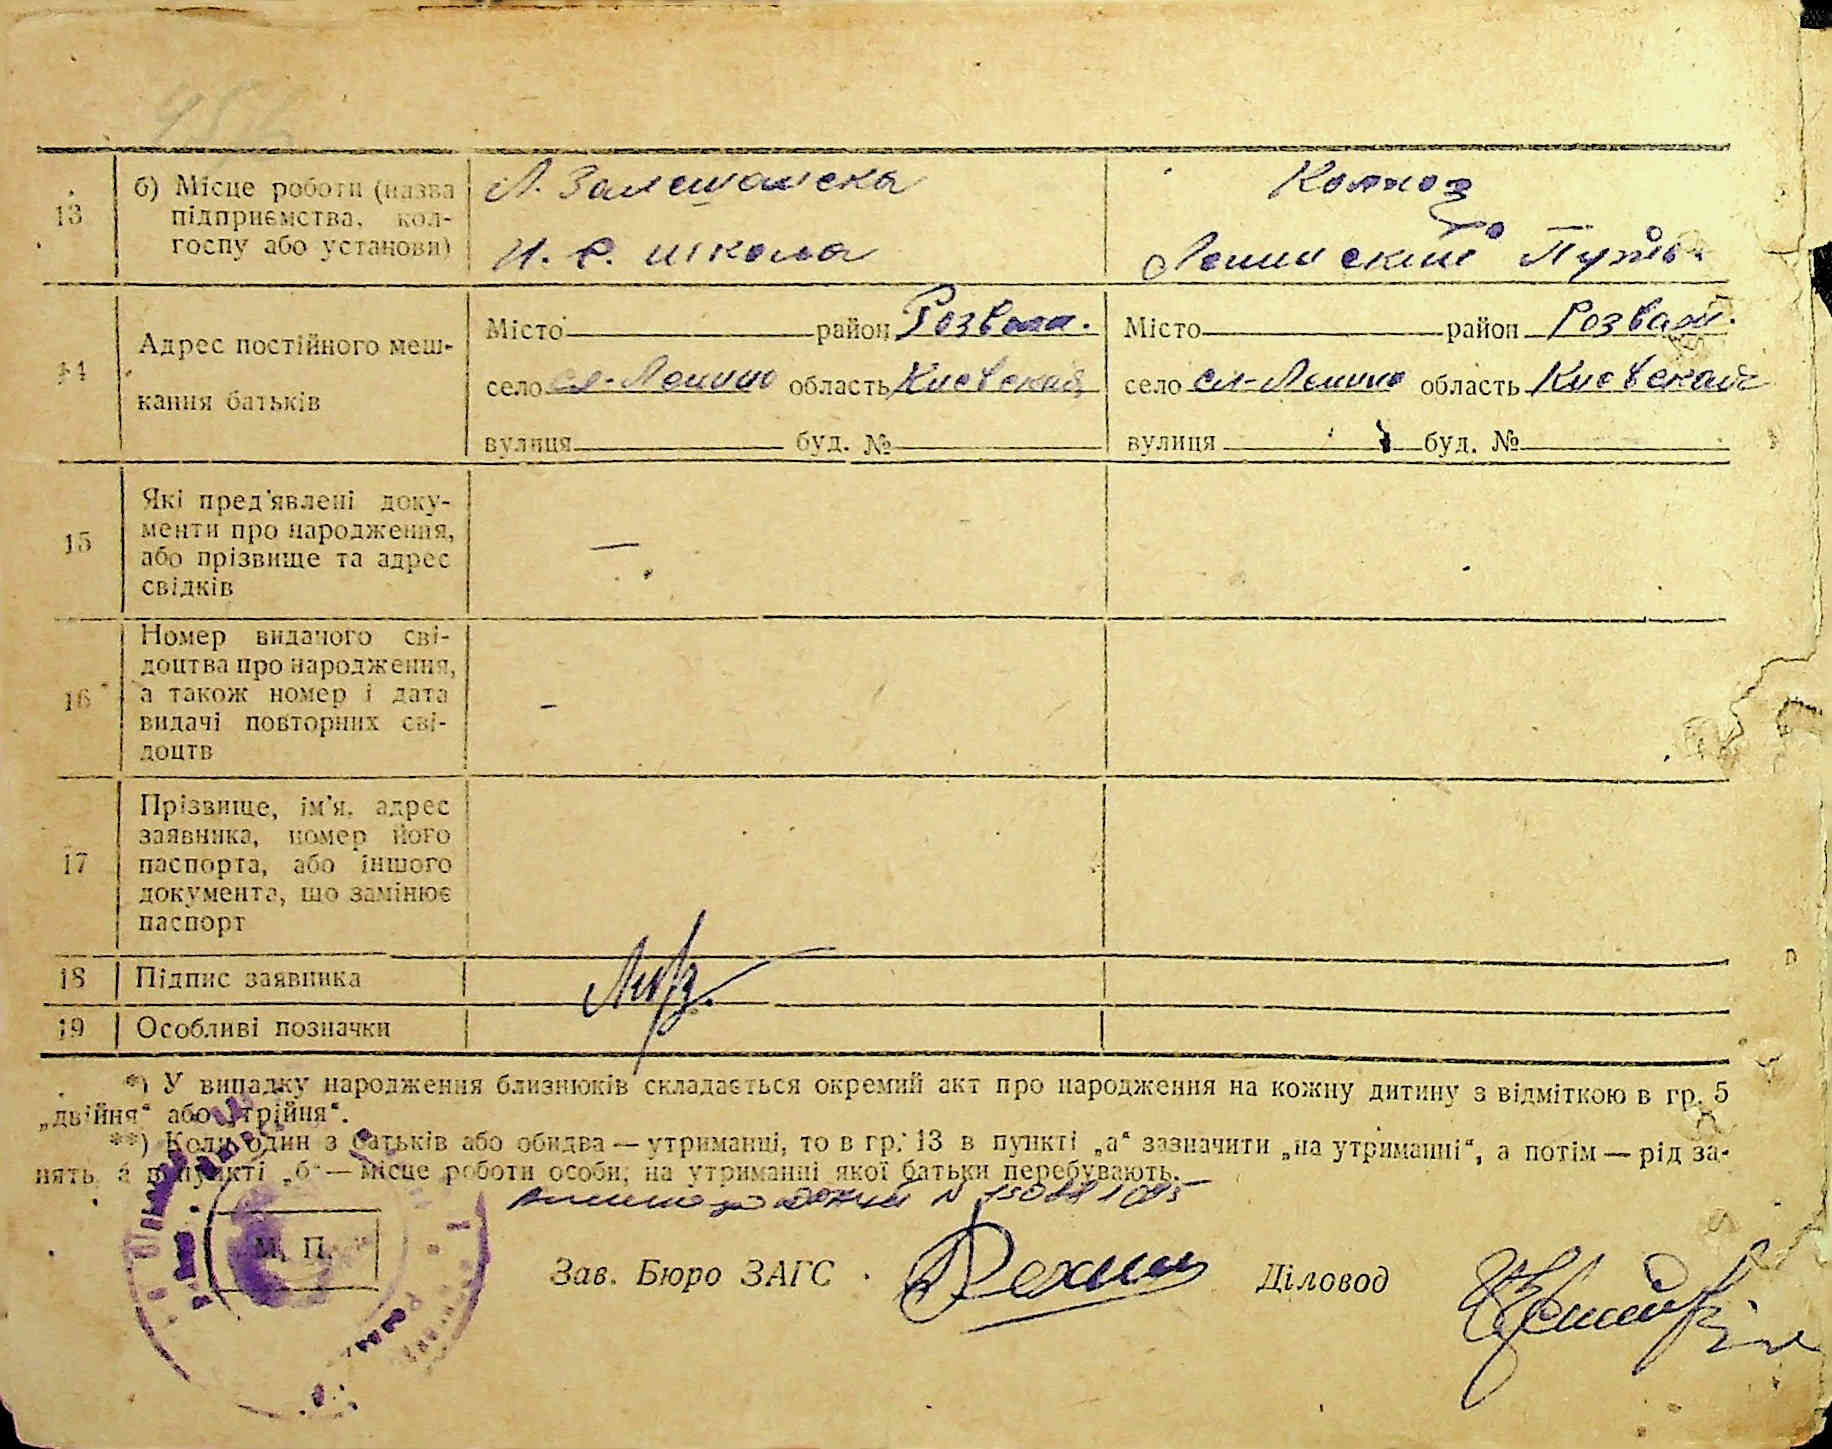 13
б) Місце роботи (назва
підприємства, кол-
госпу або установи)
Н. С. школа
Колхоз
Ленинский Путь
14
Адрес постійного меш-
кання батьків
Місто район Розваж.
село сл-Ленино область Киевская
вулиця буд. №
Місто район Розваж.
село сл-Ленино область Киевская
вулиця буд. №
15
Які пред'явлені доку-
менти про народження,
або прізвище та адрес
свідків
—
16
Номер виданого сві-
доцтва про народження,
а також номер і дата
видачі повторних сві-
доцтв
-
17
Прізвище, ім'я, адрес
заявника, номер його
паспорта, або іншого
документа, що замінює
паспорт
18 Підпис заявника
19 Особливі позначки
*) У випадку народження близнюків складається окремий акт про народження на кожну дитину з відміткою в гр. 5
„двійня“ або „трійня“.
**) Коли один з батьків або обидва — утриманці, то в гр. 13 в пункті „а“ зазначити „на утриманні“, а потім — рід за-
нять, а в пункті „б“ — місце роботи особи, на утриманні якої батьки перебувають.
М. П.
Зав. Бюро ЗАГС
Діловод